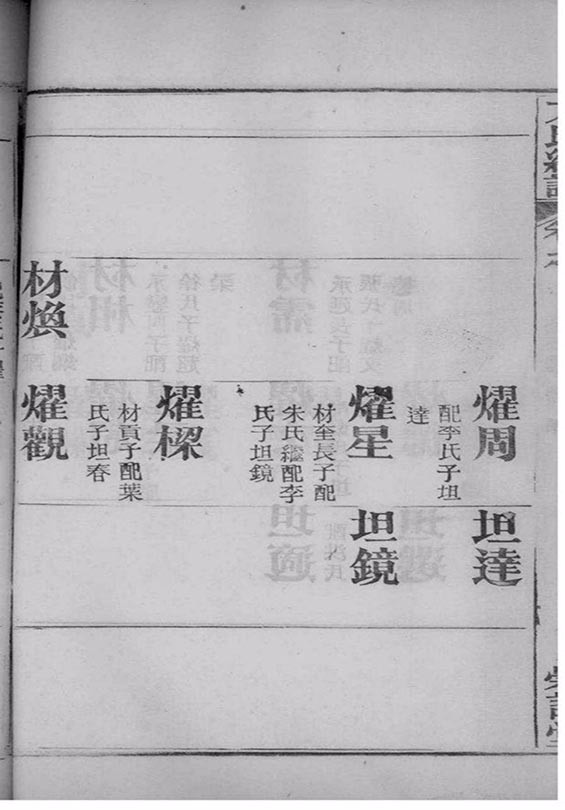 耀周
配李氏子坦
達
坦達
耀星
材奎長子配
朱氏繼配李
氏子坦鏡
坦鏡
耀樑
材貢子配葉
氏子坦春
材煥
耀觀